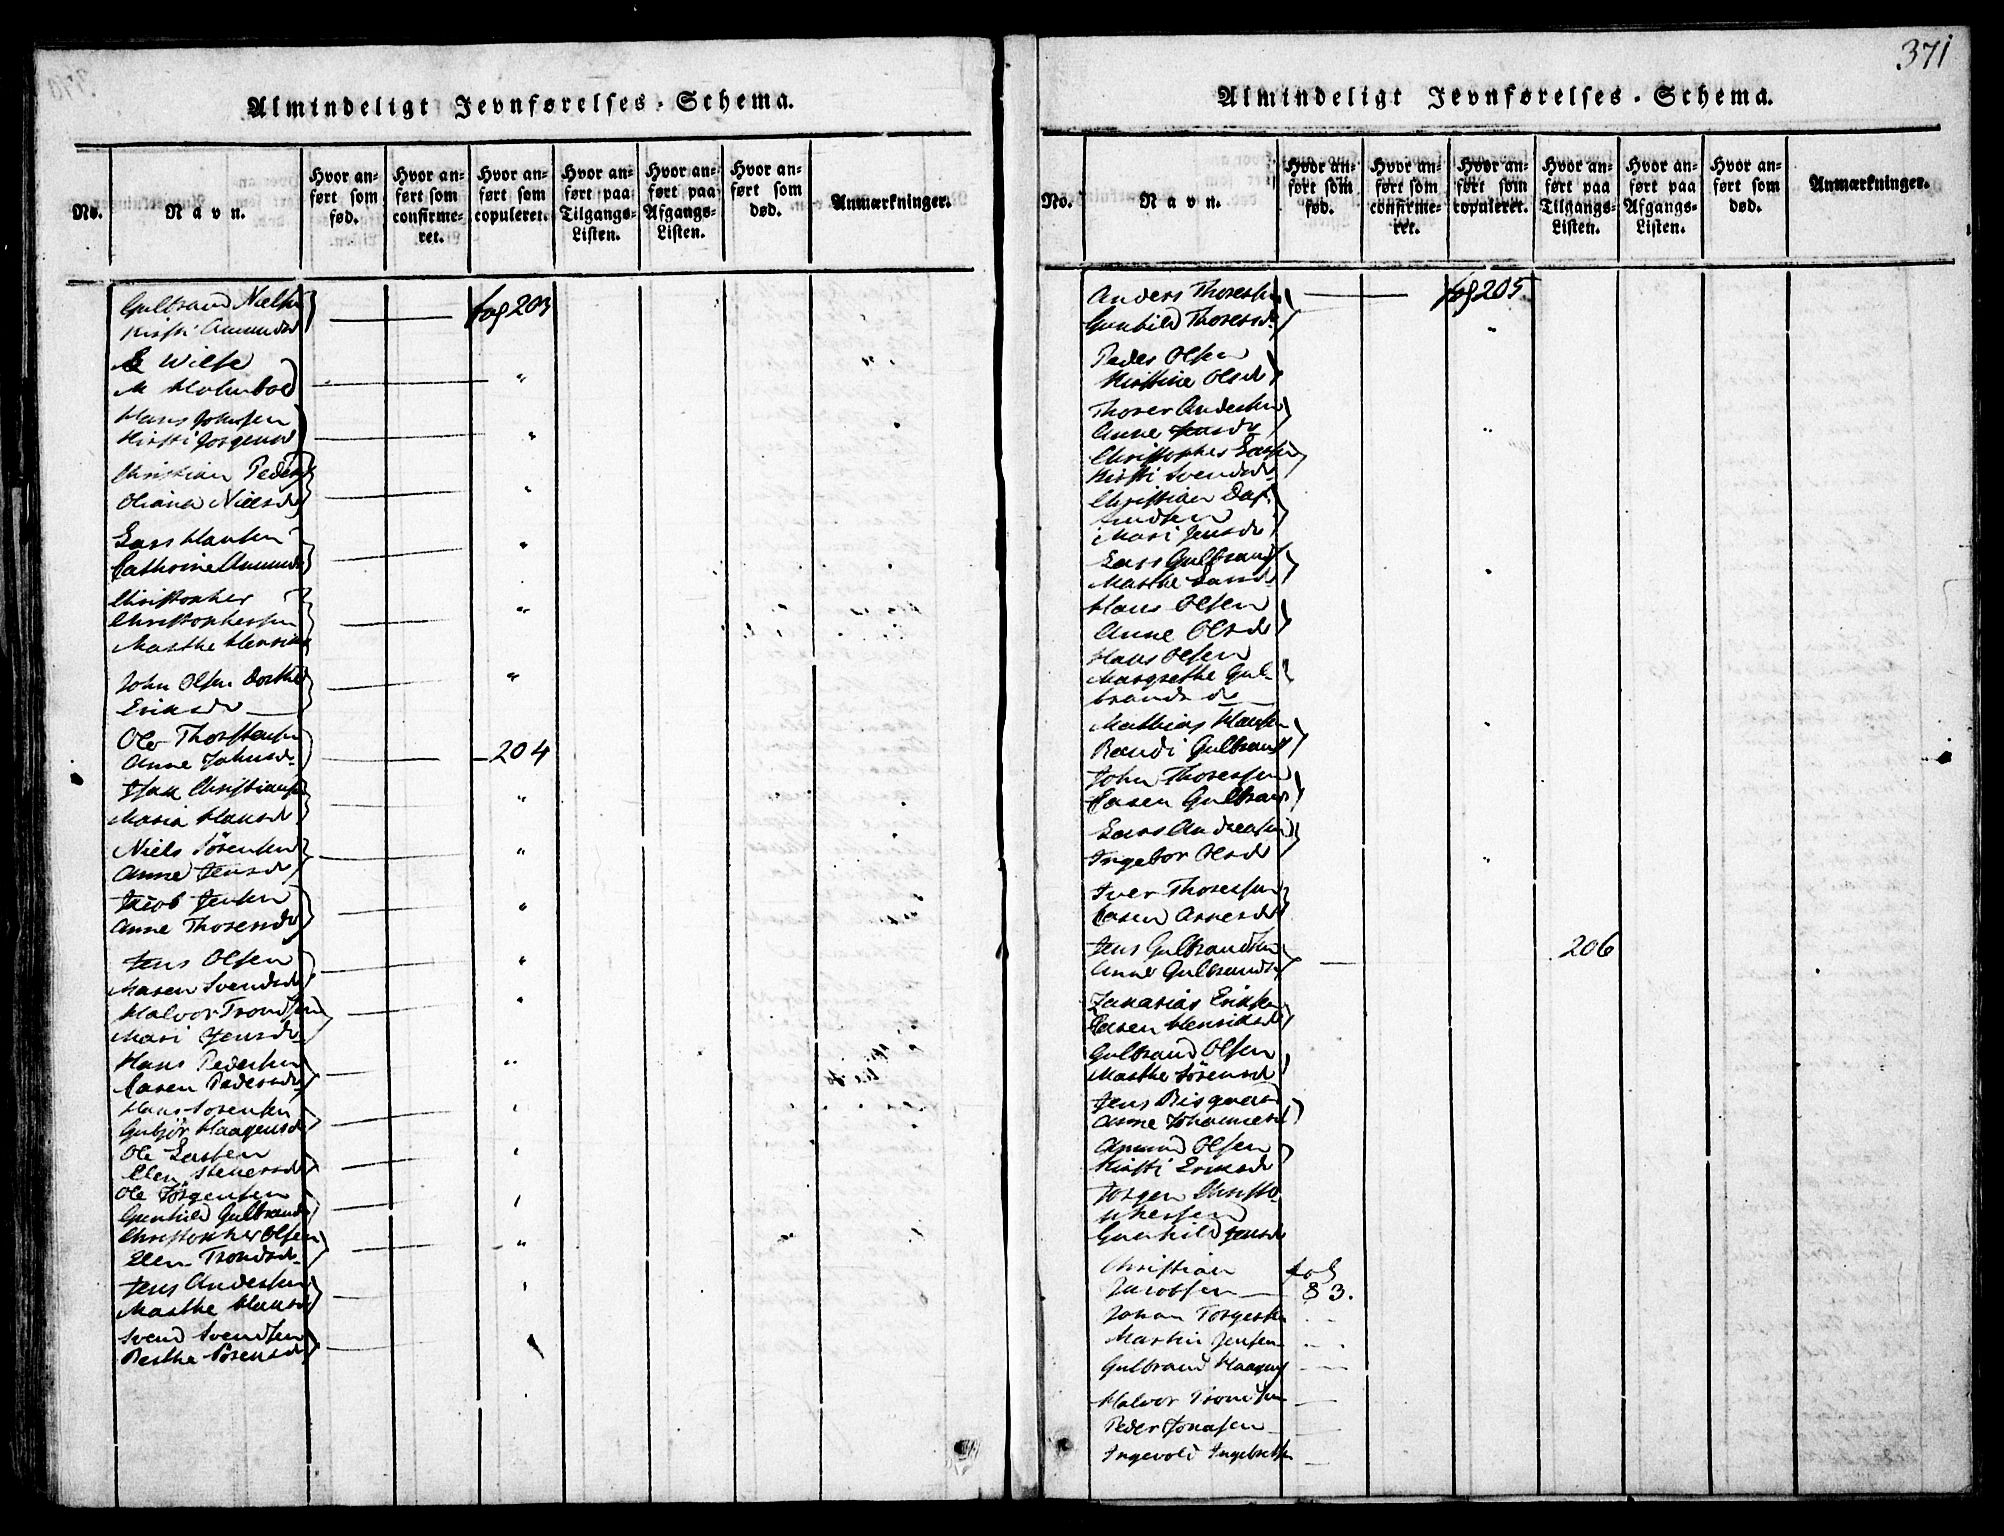 371
Almindeligt Jevnførelses-Schema.
No.
Navn.
Hvor anført som fød.
Hvor anført som confirmeret.
Hvor anført som copuleret.
Hvor anført paa Tilgangs-Listen.
Hvor anført paa Afgangs-Listen.
Hvor anført som død.
Anmærkninger.
Gulbrand Nielsen
Kirsti Amundsd fol 203
Wilse
M Holmboe "
Hans Johnsen
Kirsti Jørgensd "
Christian Peders
Oliana Nielsd "
Lars Hansen
Cathrine Amunds "
Christopher
Christophersen "
Marthe Henriks
John Olsen Dorthe "
Eriksdr
Ole Thorstensen
Anne Johnsd 204
Isak Christians
Maria Hansdr "
Niels Sørensen
Anne Jensdr "
Jacob Jensen
Anne Thoresdr "
Jens Olsen
Maren Svendsdr "
Halvor Trondsen "
Mari Jensdr
Hans Pedersen "
Karen Pedersdr
Hans Sorensen
Gubjør Haagensdr
Ole Larsen
Elen Steversdr
Ole Jørgensen
Gunhild Gulbrands
Christopher Olsen
Elen Trondsdr "
Jens Andersen
Marthe Hansdr
Svend Svendsen
Berthe Sørensdr
Almindeligt Jevnførelses-Schema.
No.
Navn.
Hvor anført som fød.
Hvor anført som confirmeret.
Hvor anført som copuleret.
Hvor anført paa Tilgangs-Listen.
Hvor anført paa Afgangs-Listen.
Hvor anført som død.
Anmærkninger.
Anders Thoresen fol 205
Gunhild Thoresdr "
Peder Olsen
Kirstine Olsdr
Thorer Andersen
Anne Jensdr "
Christopher Larsen
Kirsti Svendsdr
Christian
Mari Jensdr
Lars Gulbrands
Marthe Larsdr "
Hans Olsen
Anne Olsdr
Hans Olsen
Margrethe Gul-
brands dr
Mathias Hansen "
Randi Gulbrands
John Thoresen
Karen Gulbrands
Lars Andersen
Ingebor Olsdr "
Iver Thoresen
Karen Arnesdr
Jens Gulbrandsen 206
Anne Gulbrandsdr
Zakarias Eriksen
Karen Henriksdr
Gulbrand Olsen
Marthe Sørensd
Jens
Anne Johannesd
Amund Olsen
Kirsti Eriksdr
Jørgen Christo-
phersen
Gunhild Jensdr
Christian fol
Jacobsen 83.
Johan Torgersen
Martin Jensen
Gulbrand Haagens
Halvor Trondsen
Peder Jonasen
Ingevold Ingebretsen